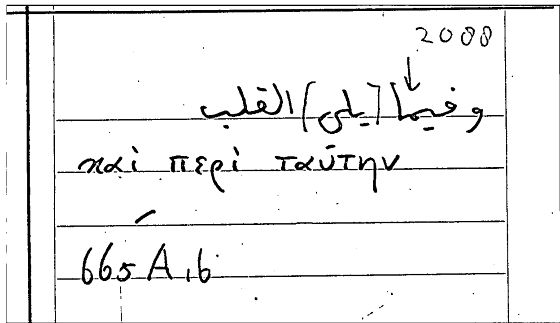 2088
وفيما [يلى] القلب
καὶ περὶ ταύτην
665 A, 6